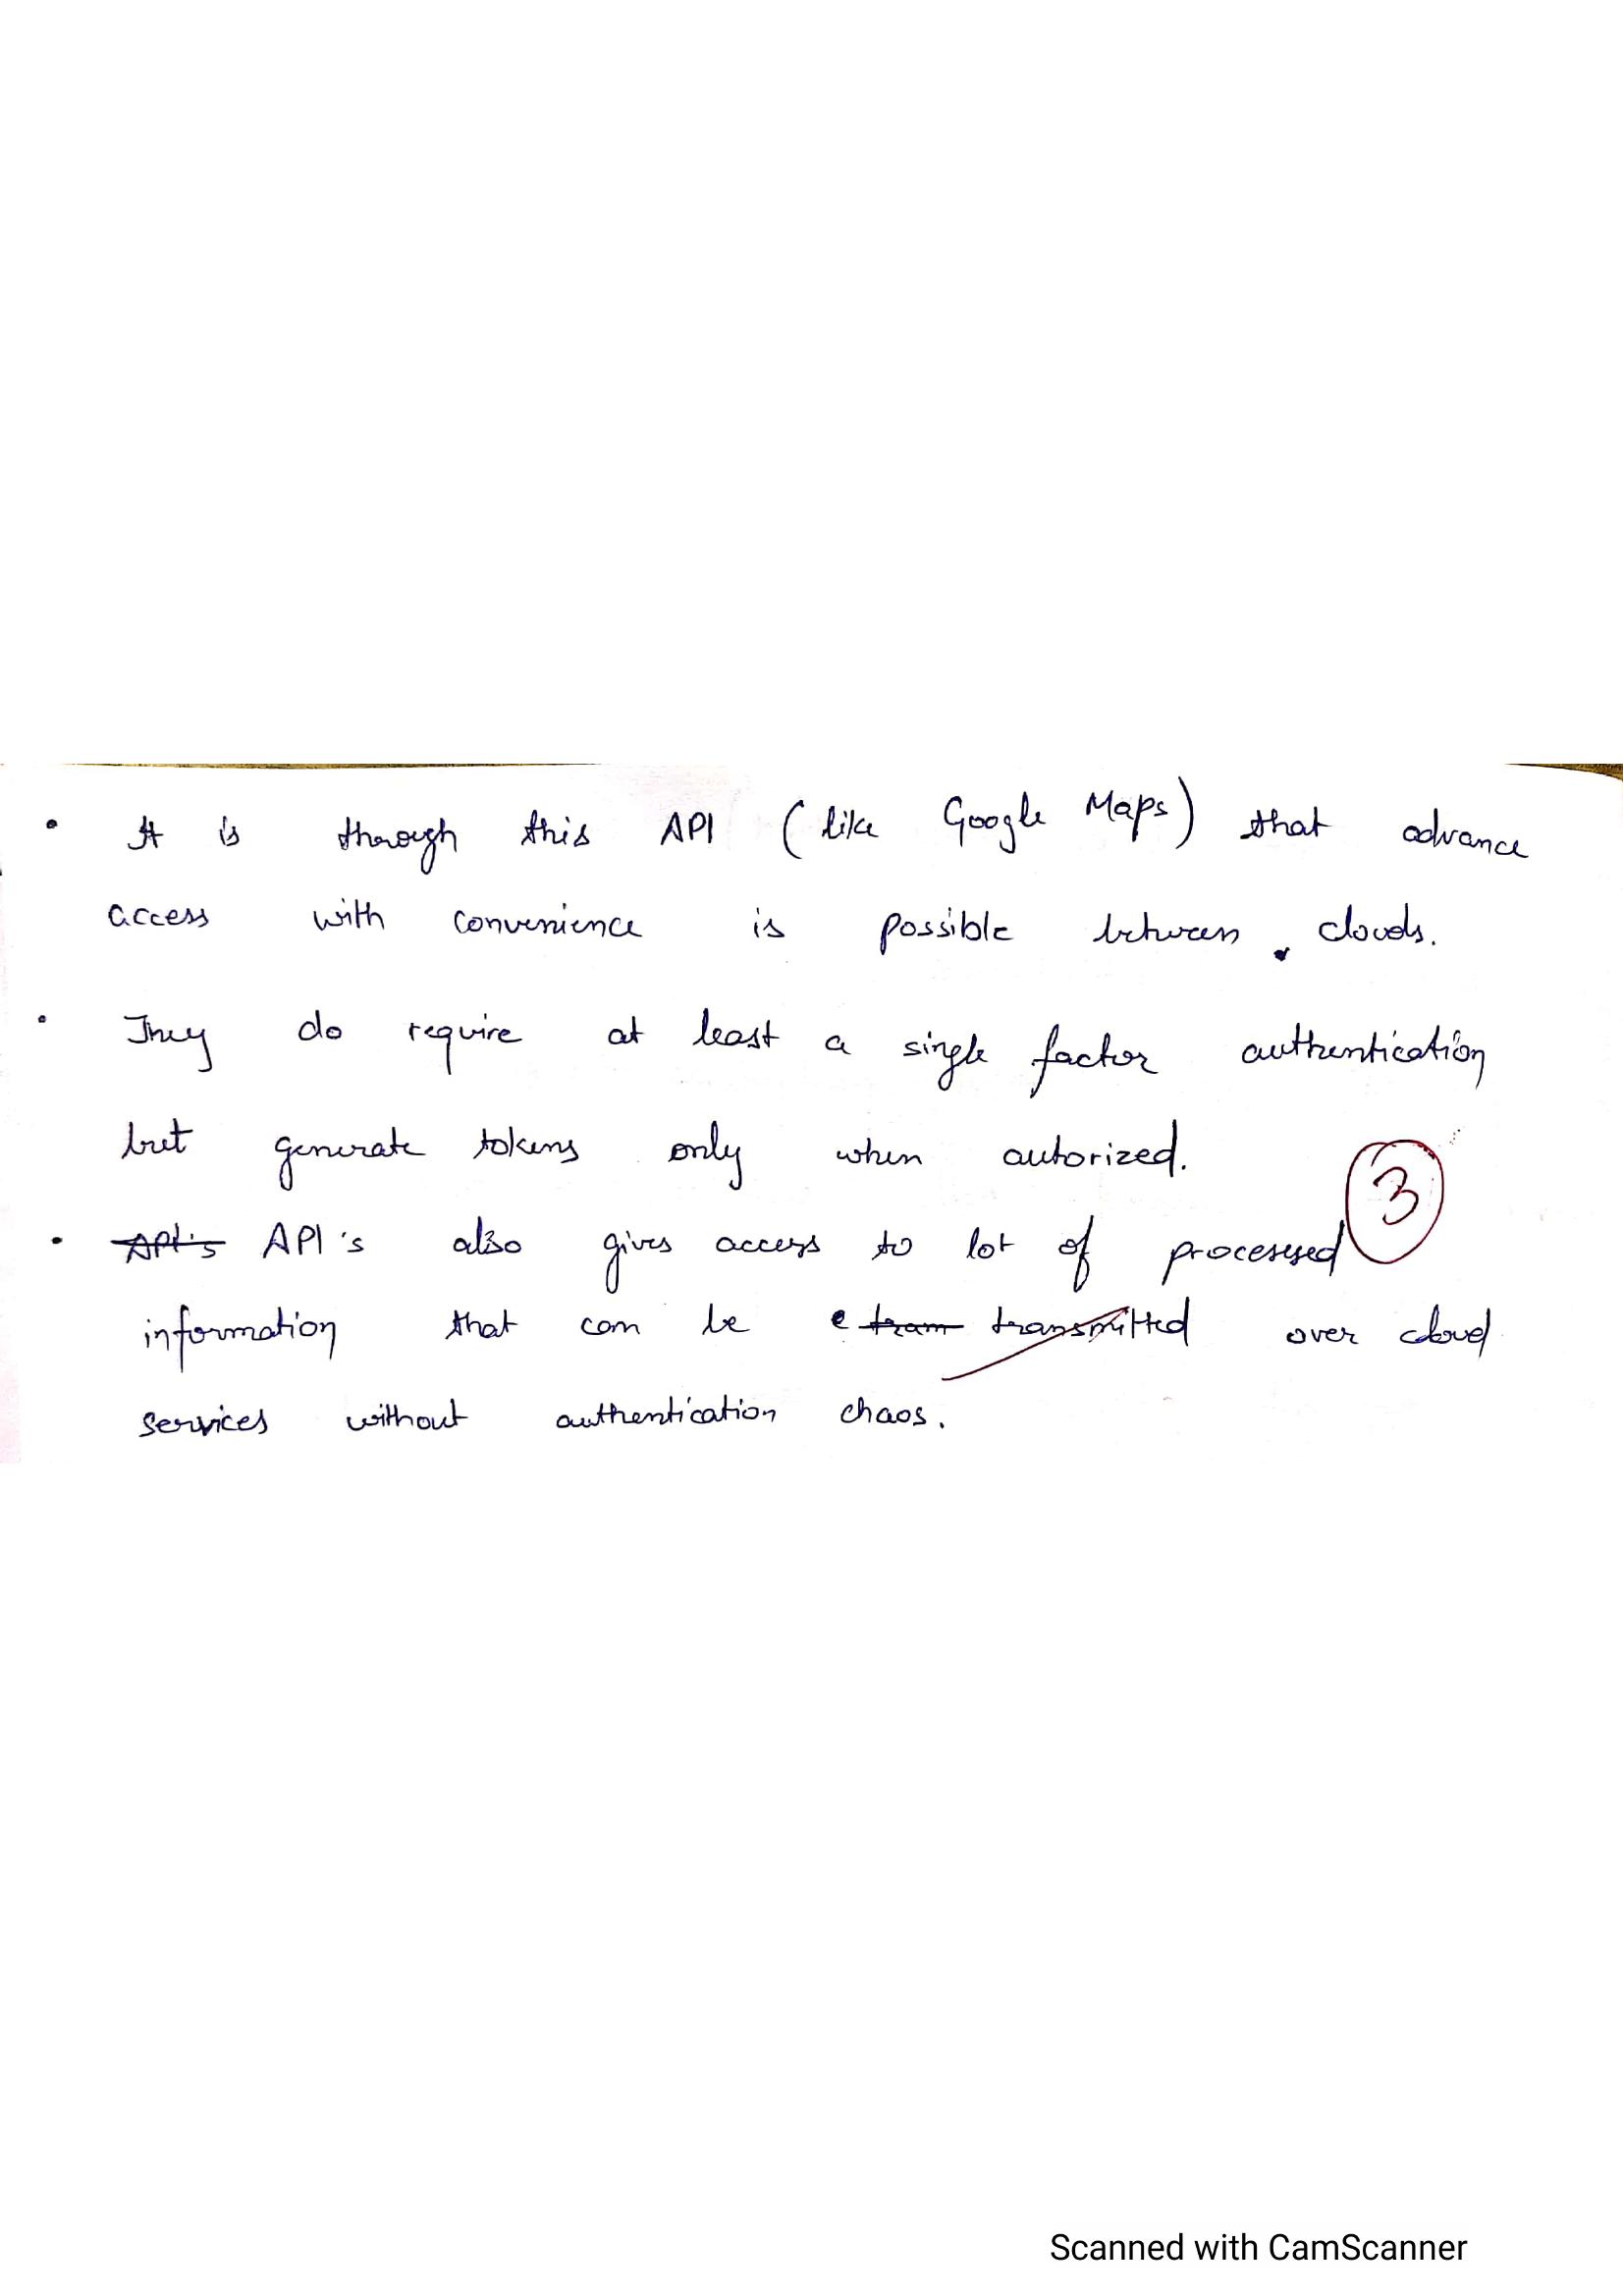 • It is thorough this API (like Google Maps) that advance
access with convenience is possible between clouds.
• They do require at least a single factor authentication
but generate tokens only when autorized.
3
• API's API's also gives access to lot of processed
information that can be e tram transmitted over cloud
services without authentication chaos.
Scanned with CamScanner